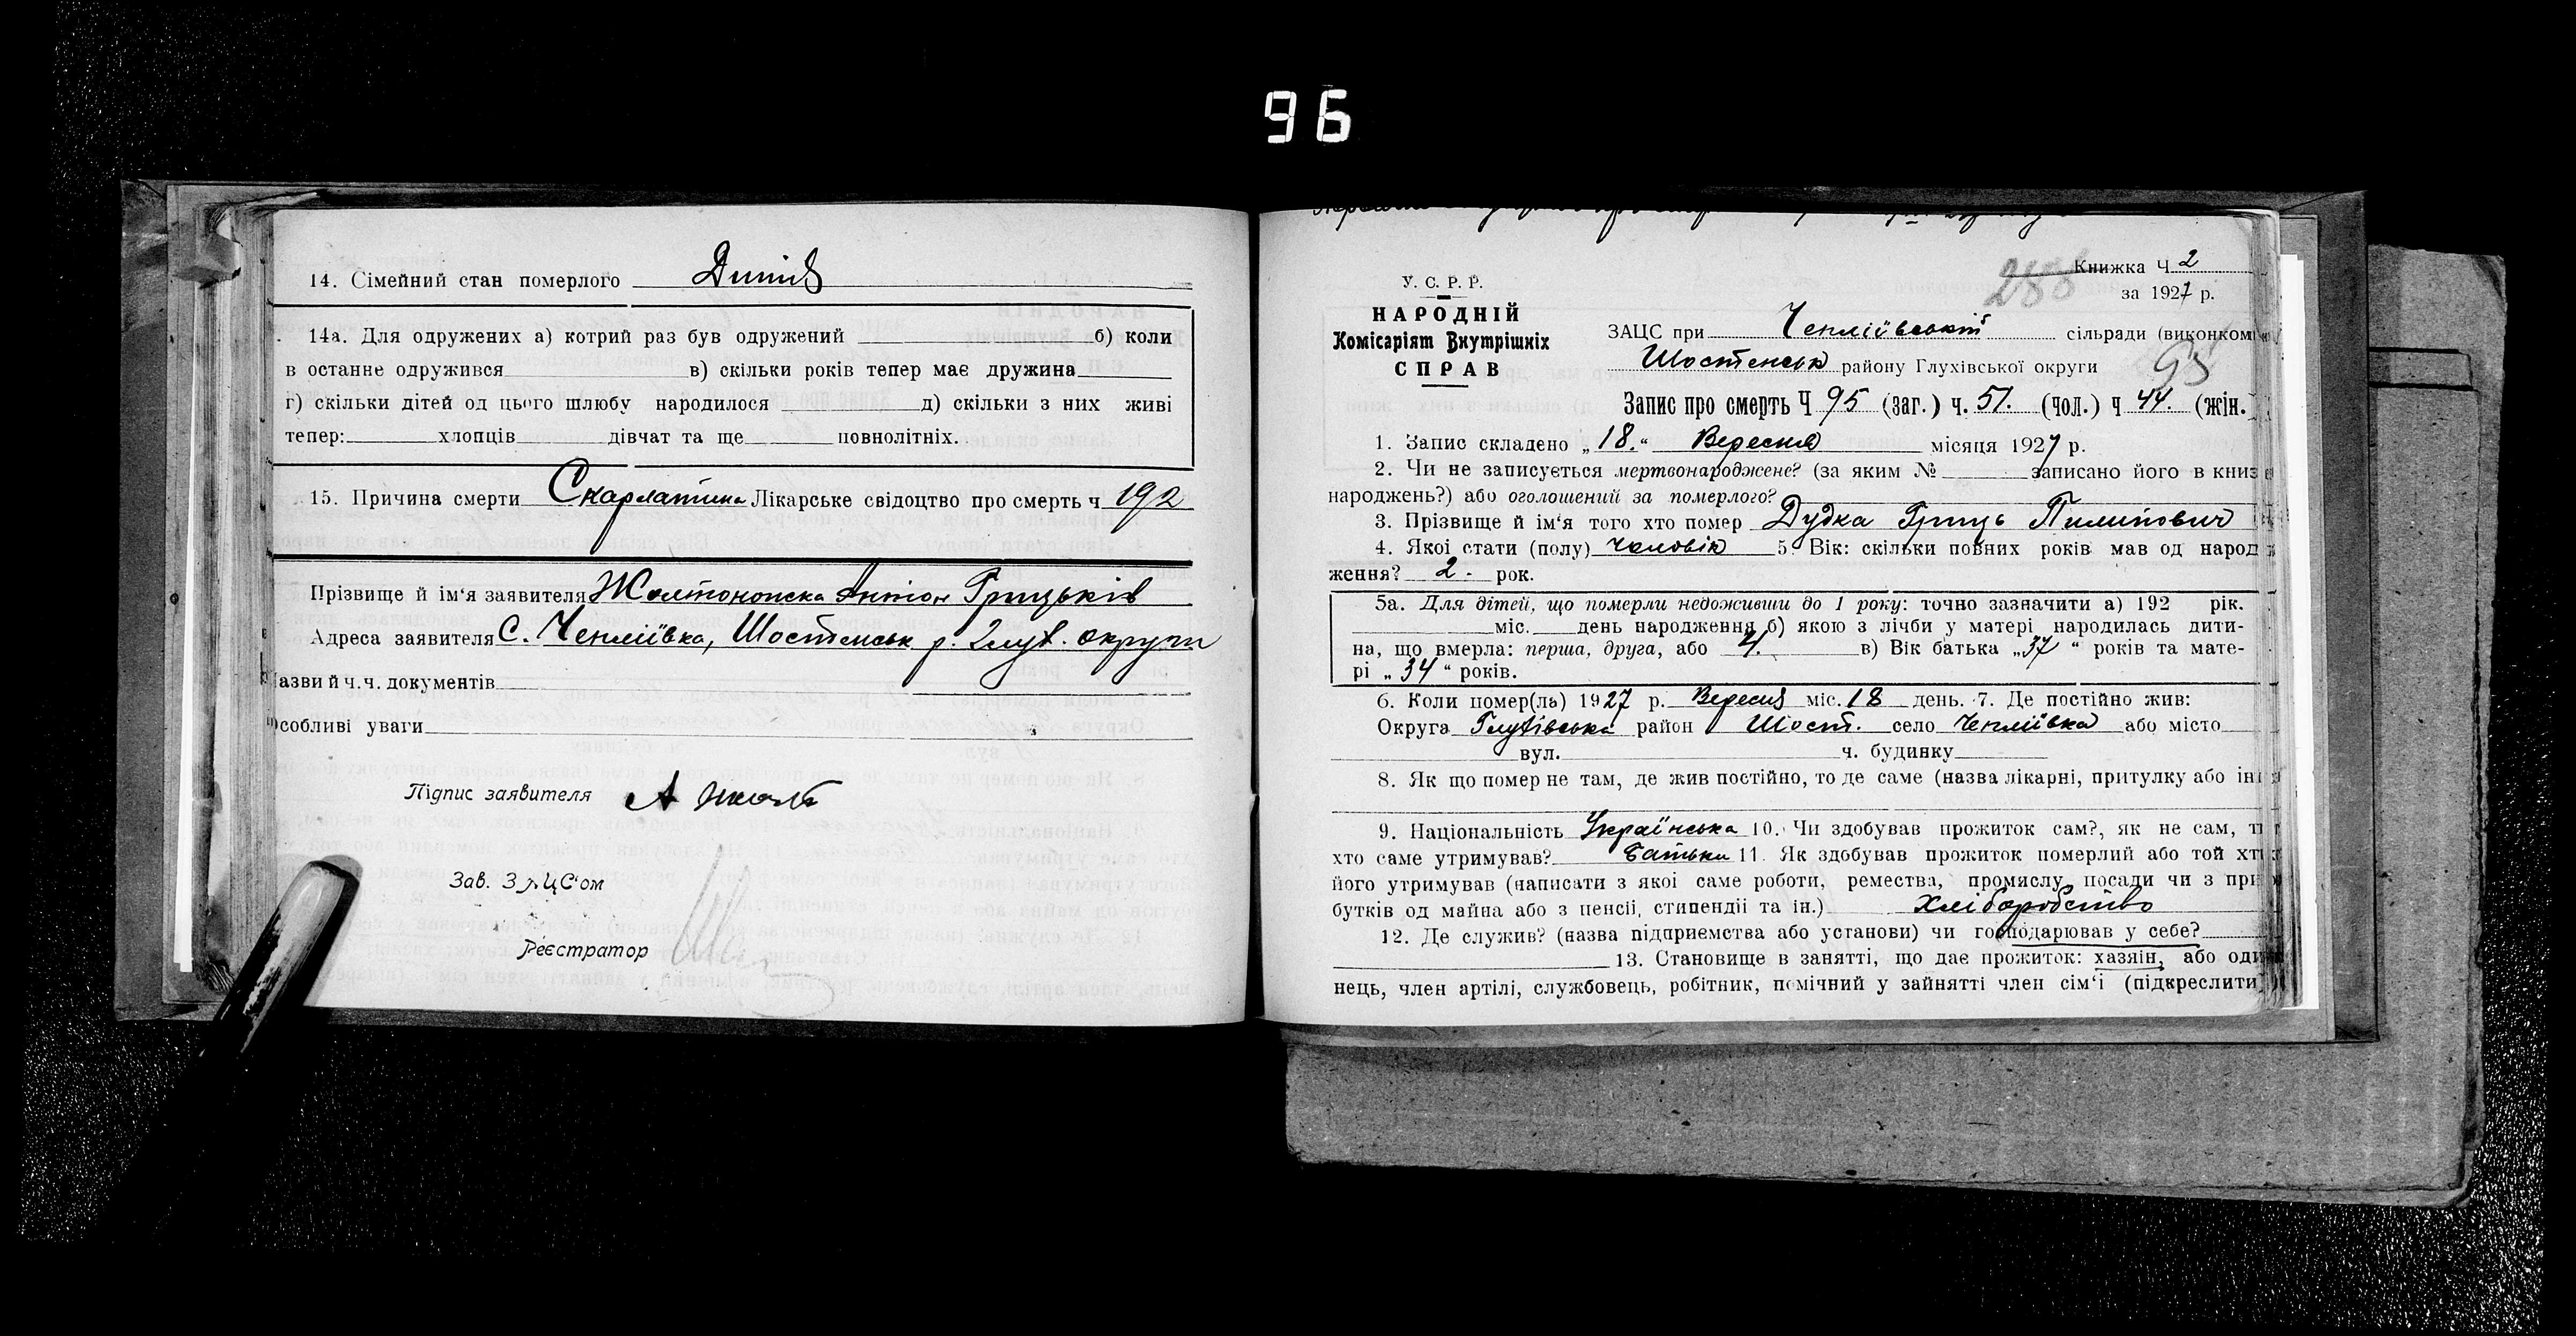 96
14. Сімейний стан померлого
14а. Для одружених а) котрий раз був одружений б) коли
в останне одружився в) скільки років тепер має дружина
г) скільки дітей од цього шлюбу народилося д) скільки з них живі
тепер: хлопців дівчат та ще повнолітніх.
15. Причина смерти Скарлатина Лікарське свідоцтво про смерть ч 192
Прізвище й ім‘я заявителя Антон Грицьків
Адреса заявителя С. Чепліївка, Шостенськ р. Глух. округи
Назви й ч.ч. документів
Особливі уваги
Підпис заявителя
Зав. ЗАЦС‘ом
Реєстратор
288 Книжка Ч 2
за 1927 р.
У. С. Р. Р.
НАРОДНІЙ
Комісаріят Внутрішніх
СПРАВ
ЗАЦС при Чепліївській сільради (виконкомі
Шостенськ району Глухівської округи
95
Запис про смерть Ч 95 (заг.) ч. 51. (чол.) ч 44. (жін.)
1. Запис складено „18.“ Вересня місяця 1927 р.
2. Чи не записується мертвонароджене? (за яким № записано його в книз
народжень?) або оголошений за померлого?
3. Прізвище й ім‘я того хто помер Дудка Гриць Пилипович
4. Якої стати (полу) чоловік 5. Вік: скільки повних років мав од народ
ження? 2. рок.
5а. Для дітей, що померли недоживши до 1 року: точно зазначити а) 192 рік.
міс. день народження б) якою з лічби у матері народилась дити-
на, що вмерла: перша, друга, або 4. в) Вік батька „37“ років та мате-
рі „34“ років.
6. Коли помер(ла) 1927 р. Вересня міс. 18 день. 7. Де постійно жив:
Округа Глухівська район Шост. село Чепліївка або місто
вул. ч. будинку
8. Як що помер не там, де жив постійно, то де саме (назва лікарні, притулку або ін
9. Національність Українська 10. Чи здобував прожиток сам?, як не сам, т
хто саме утримував? батьки 11. Як здобував прожиток померлий або той хт
його утримував (написати з якоі саме роботи, ремества, промяслу посади чи з при
бутків од майна або з пенсіі, стипендіі та ін.) Хліборобство
12. Де служив? (назва підприємства або установи) чи господарював у себе?
13. Становище в занятті, що дає прожиток: хазяін, або оди
нець, член артілі, службовець, робітник, помічний у зайнятті член сім‘і (підкреслити)